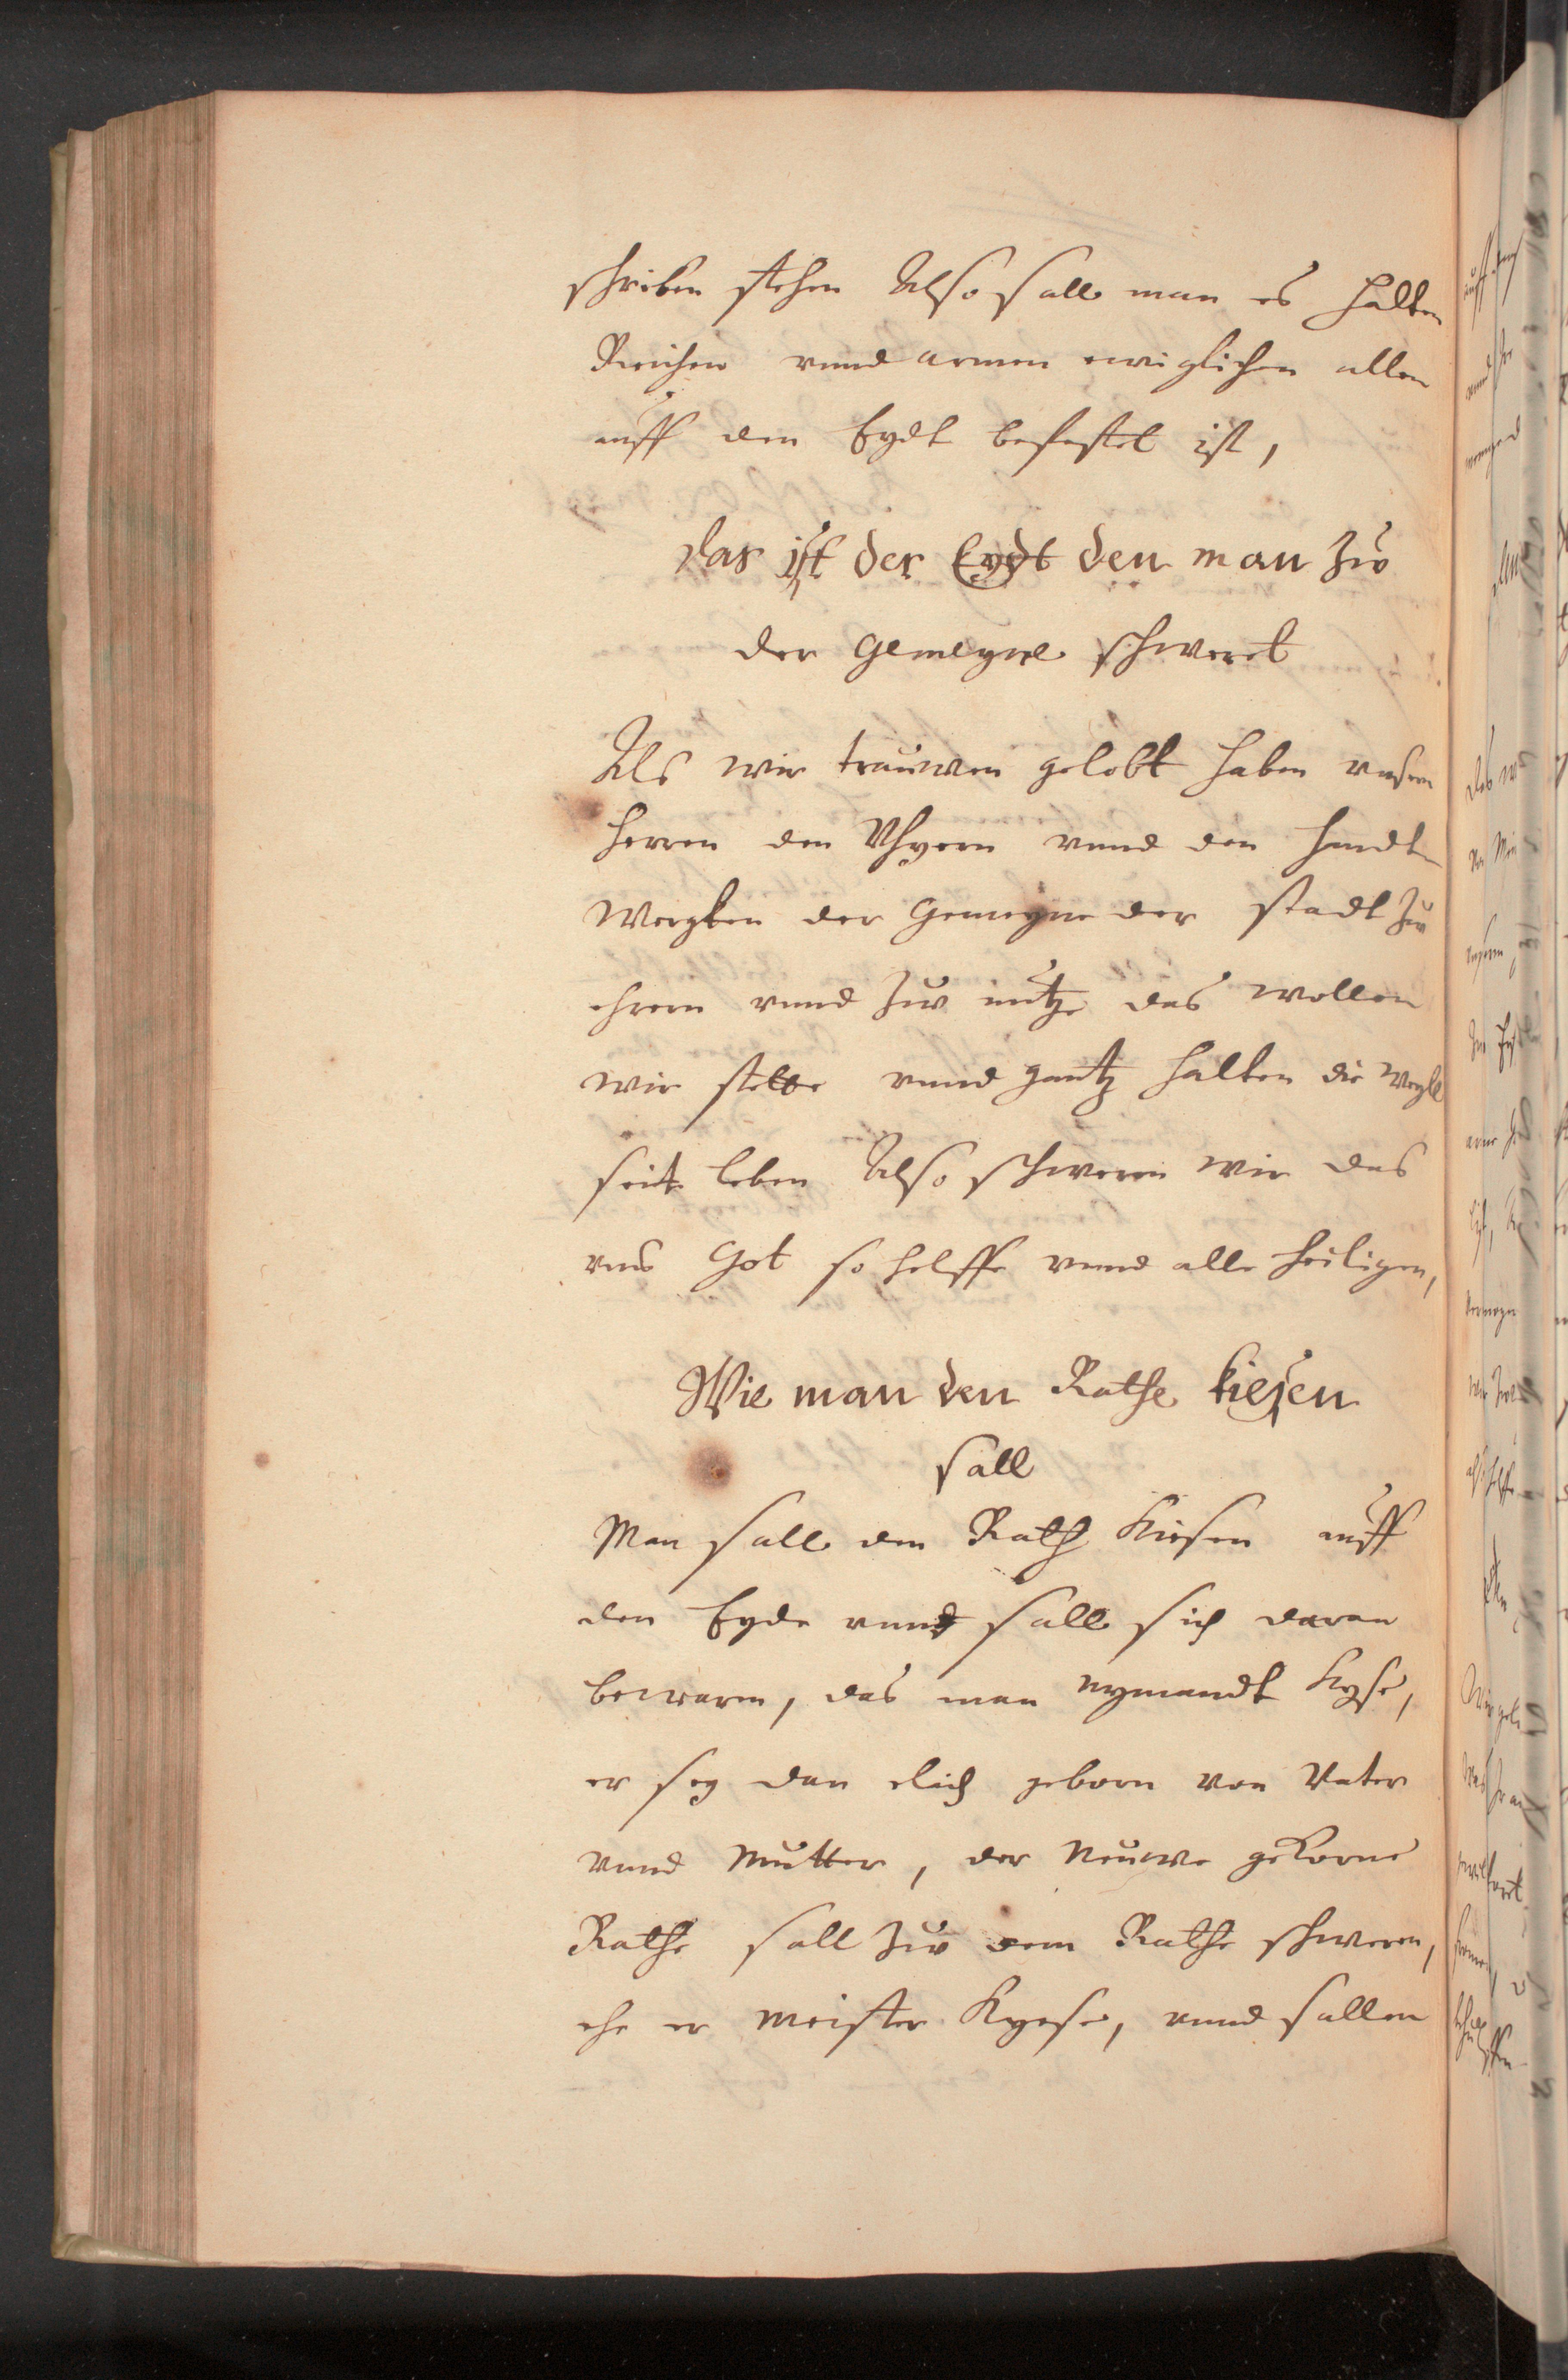 schriben stehen Also sall man es halten
Reichen vnnd armen ewiglichen allen
auff den Eydt befestet ist,
das ist der Eydt den man zw
der gemeyne schweret
Als wir trauwen gelobt haben vnsern
herren den vnnd den handt
wergken der gemeyne der stadt zw
ehren vnnd zuw nutze das wollen
wir stette vnnd gantz halten die weyll
seit leben Also schweren wir das
vns Got so helffe vnnd alle heiligen,
Wie man den Rathe kiesen
sall
Man sall den Rath kiesen auff
den Eyde vnnd sall sich daran
bewaren, das man nymandt kyse,
er sey dan elich geborn von Vater
vnnd Mutter, der neuwe gekorne
Rathe sall zuw dem Rathe schweren,
ehe er meister kyese, vnnd sallen